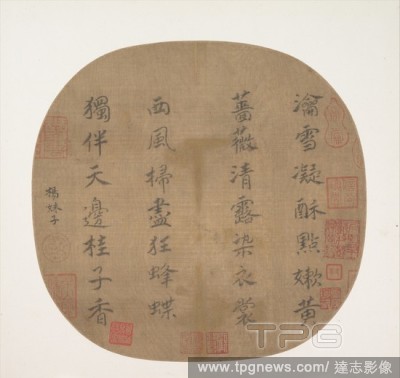 瀹雪凝酥點嫩黃
薔薇清露染衣裳
西風掃盡狂蜂蝶
獨伴天邊桂子香
楊妹子
TPG
www.tpgnews.com/達志影像